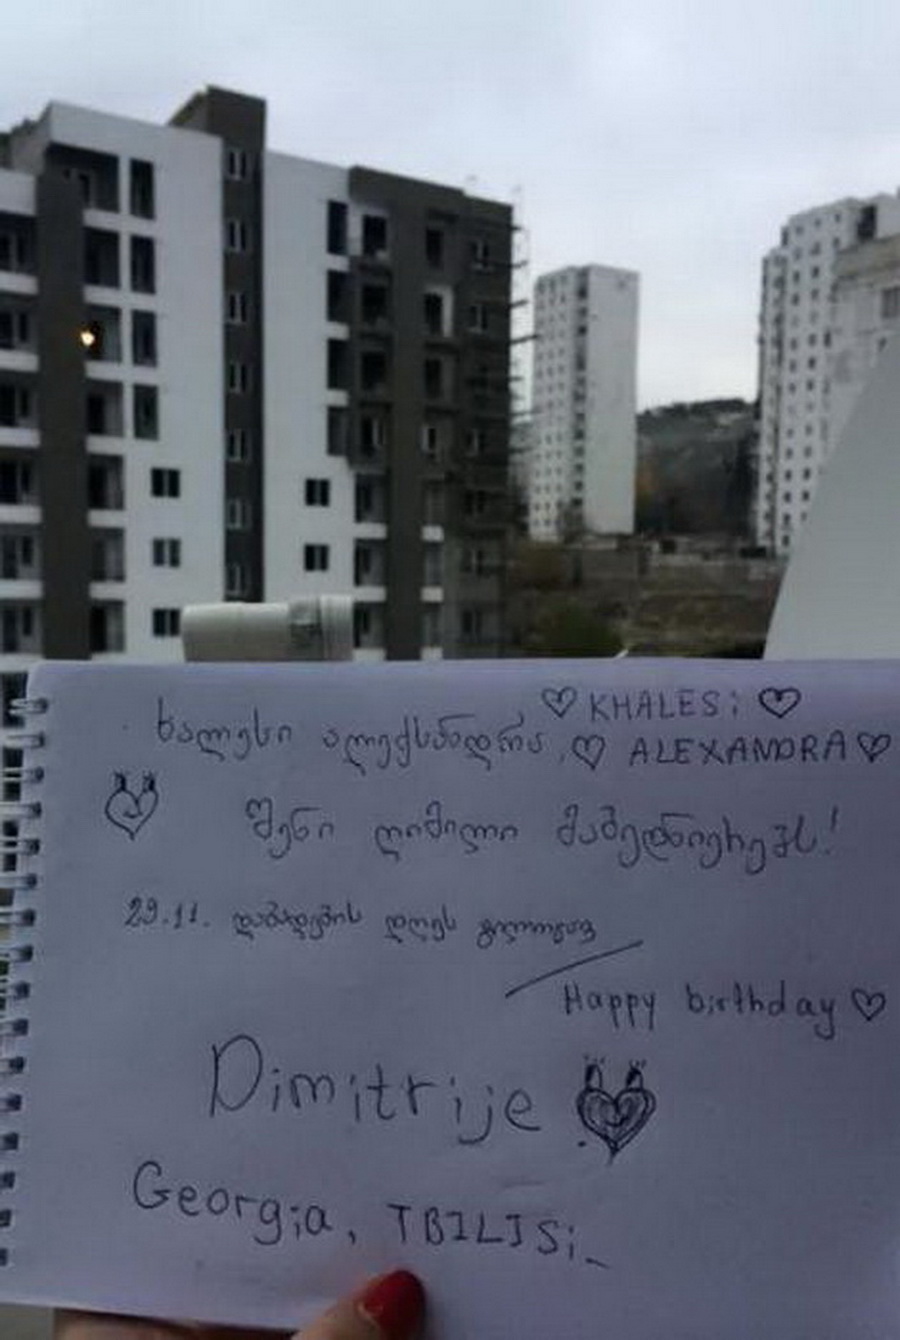 ხალესი ალექსანდრა ♡ KHALESi ♡
♡ ALEXANDRA ♡
შენი ღიმილი მაბედნიერებს!
29.11. დაბადების დღეს გილოცავ
Happy birthday ♡
Dimitrije
Georgia, TBILISi